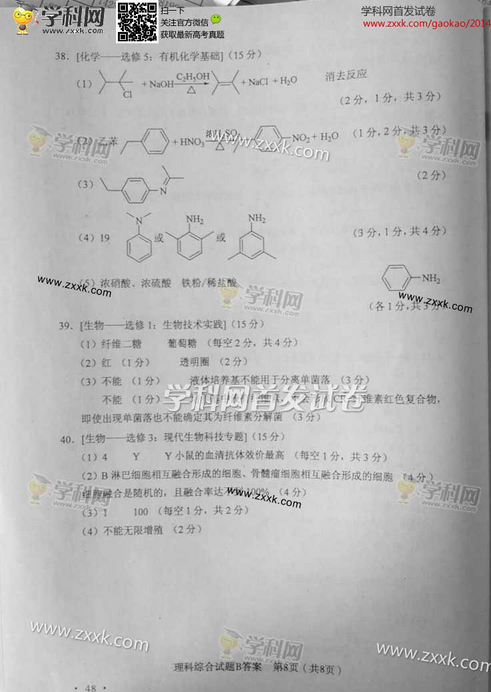 学科网
www.zxxk.com
扫一扫
关注官方微信
获取最新高考真题
学科网首发试卷
www.zxxk.com/gaokao/2014
38. [化学——选修 5：有机化学基础]（15 分）
(1) Cl + NaOH C₂H₅OH △ + NaCl + H₂O 消去反应
(2 分，1 分，共 3 分)
乙苯 + HNO₃ 浓H₂SO₄ △ NO₂ + H₂O (1 分，2 分，共 3 分)
(3) N (2 分)
(4) 19 N 或 NH₂ 或 NH₂ (3 分，1 分，共 4 分)
(5) 浓硝酸、浓硫酸 铁粉/稀盐酸 NH₂
(各 1 分，共 3 分)
39. [生物——选修 1：生物技术实践]（15 分）
(1) 纤维二糖 葡萄糖 (每空 2 分，共 4 分)
(2) 红 (1 分) 透明圈 (2 分)
(3) 不能 (1 分) 液体培养基不能用于分离单菌落 (3 分)
不能 (1 分) 维素红色复合物，
即使出现单菌落也不能确定其为纤维素分解菌 (3 分)
40. [生物——选修 3：现代生物科技专题]（15 分）
(1) 4 Y Y 小鼠的血清抗体效价最高 (每空 1 分，共 3 分)
(2) B 淋巴细胞相互融合形成的细胞、骨髓瘤细胞相互融合形成的细胞 (4 分)
细胞融合是随机的，且融合率达不到100% (4 分)
(3) 1 100 (每空 1 分，共 2 分)
(4) 不能无限增殖 (2 分)
理科综合试题B答案 第8页（共8页）
· 48 ·
学科网
www.zxxk.com
学科网首发试卷